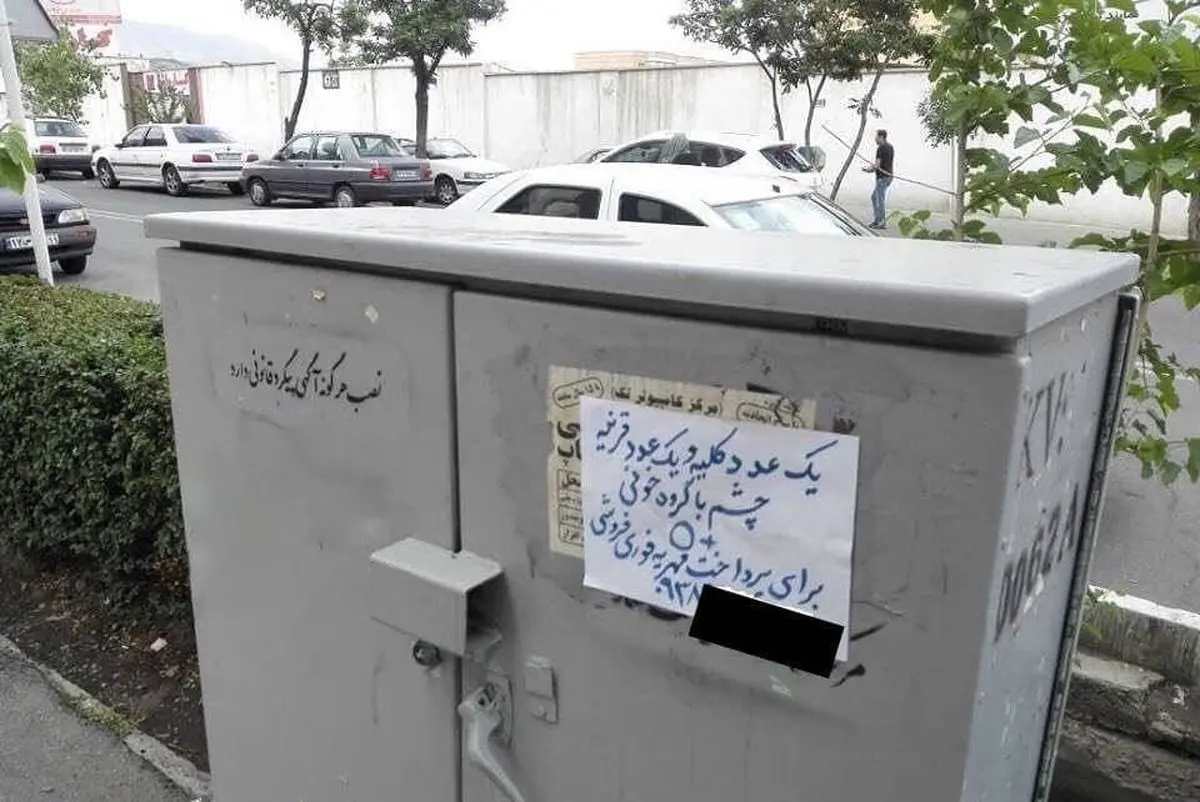 نصب هرگونه آگهی پیگرد قانونی دارد
مرکز کامپیوتر تک
یک عدد کلیه و یک عدد قرنیه
چشم با گروه خونی
O+
برای پرداخت مهریه فوری فروشی
۰۹۳۸
0062A